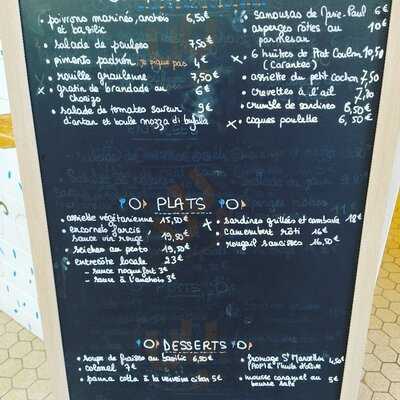 poivrons marinés, anchois 6,50€
et basilic
• salade de poulpes 7,50€
• pimento padron je pique pas 4€
• rouille graulenne 7,50€
× gratin de brandade au 6€
chorizo
• salade de tomates saveur 9€
d'antan et boule mozza di bufala
• samousas de Marie-Paul 6€
• asperges rôties au 10€
parmesan
× 6 huîtres de Prat Coulom 10,50
(Carantec)
• assiette du petit cochon 7,50
• crevettes à l'ail
• crumble de sardines 8,50€
× • coques poulette 6,50€
PLATS
• assiette végétarienne 15,50€
• encornets farcis 19,50€
sauce vin rouge
• seiches au pesto 19,50€
• entrecôte locale 23€
- sauce roquefort 3€
- sauce à l'anchois 3€
× • sardines grillées et 18€
• camembert rôti 16€
• rougail saucisses 16,50€
DESSERTS
• soupe de fraises au basilic 6,50€
• colonel 7€
• panna cotta à la verveine citron 5€
• fromage St Marcellin 4,50€
• mousse caramel au 5€
beurre salé